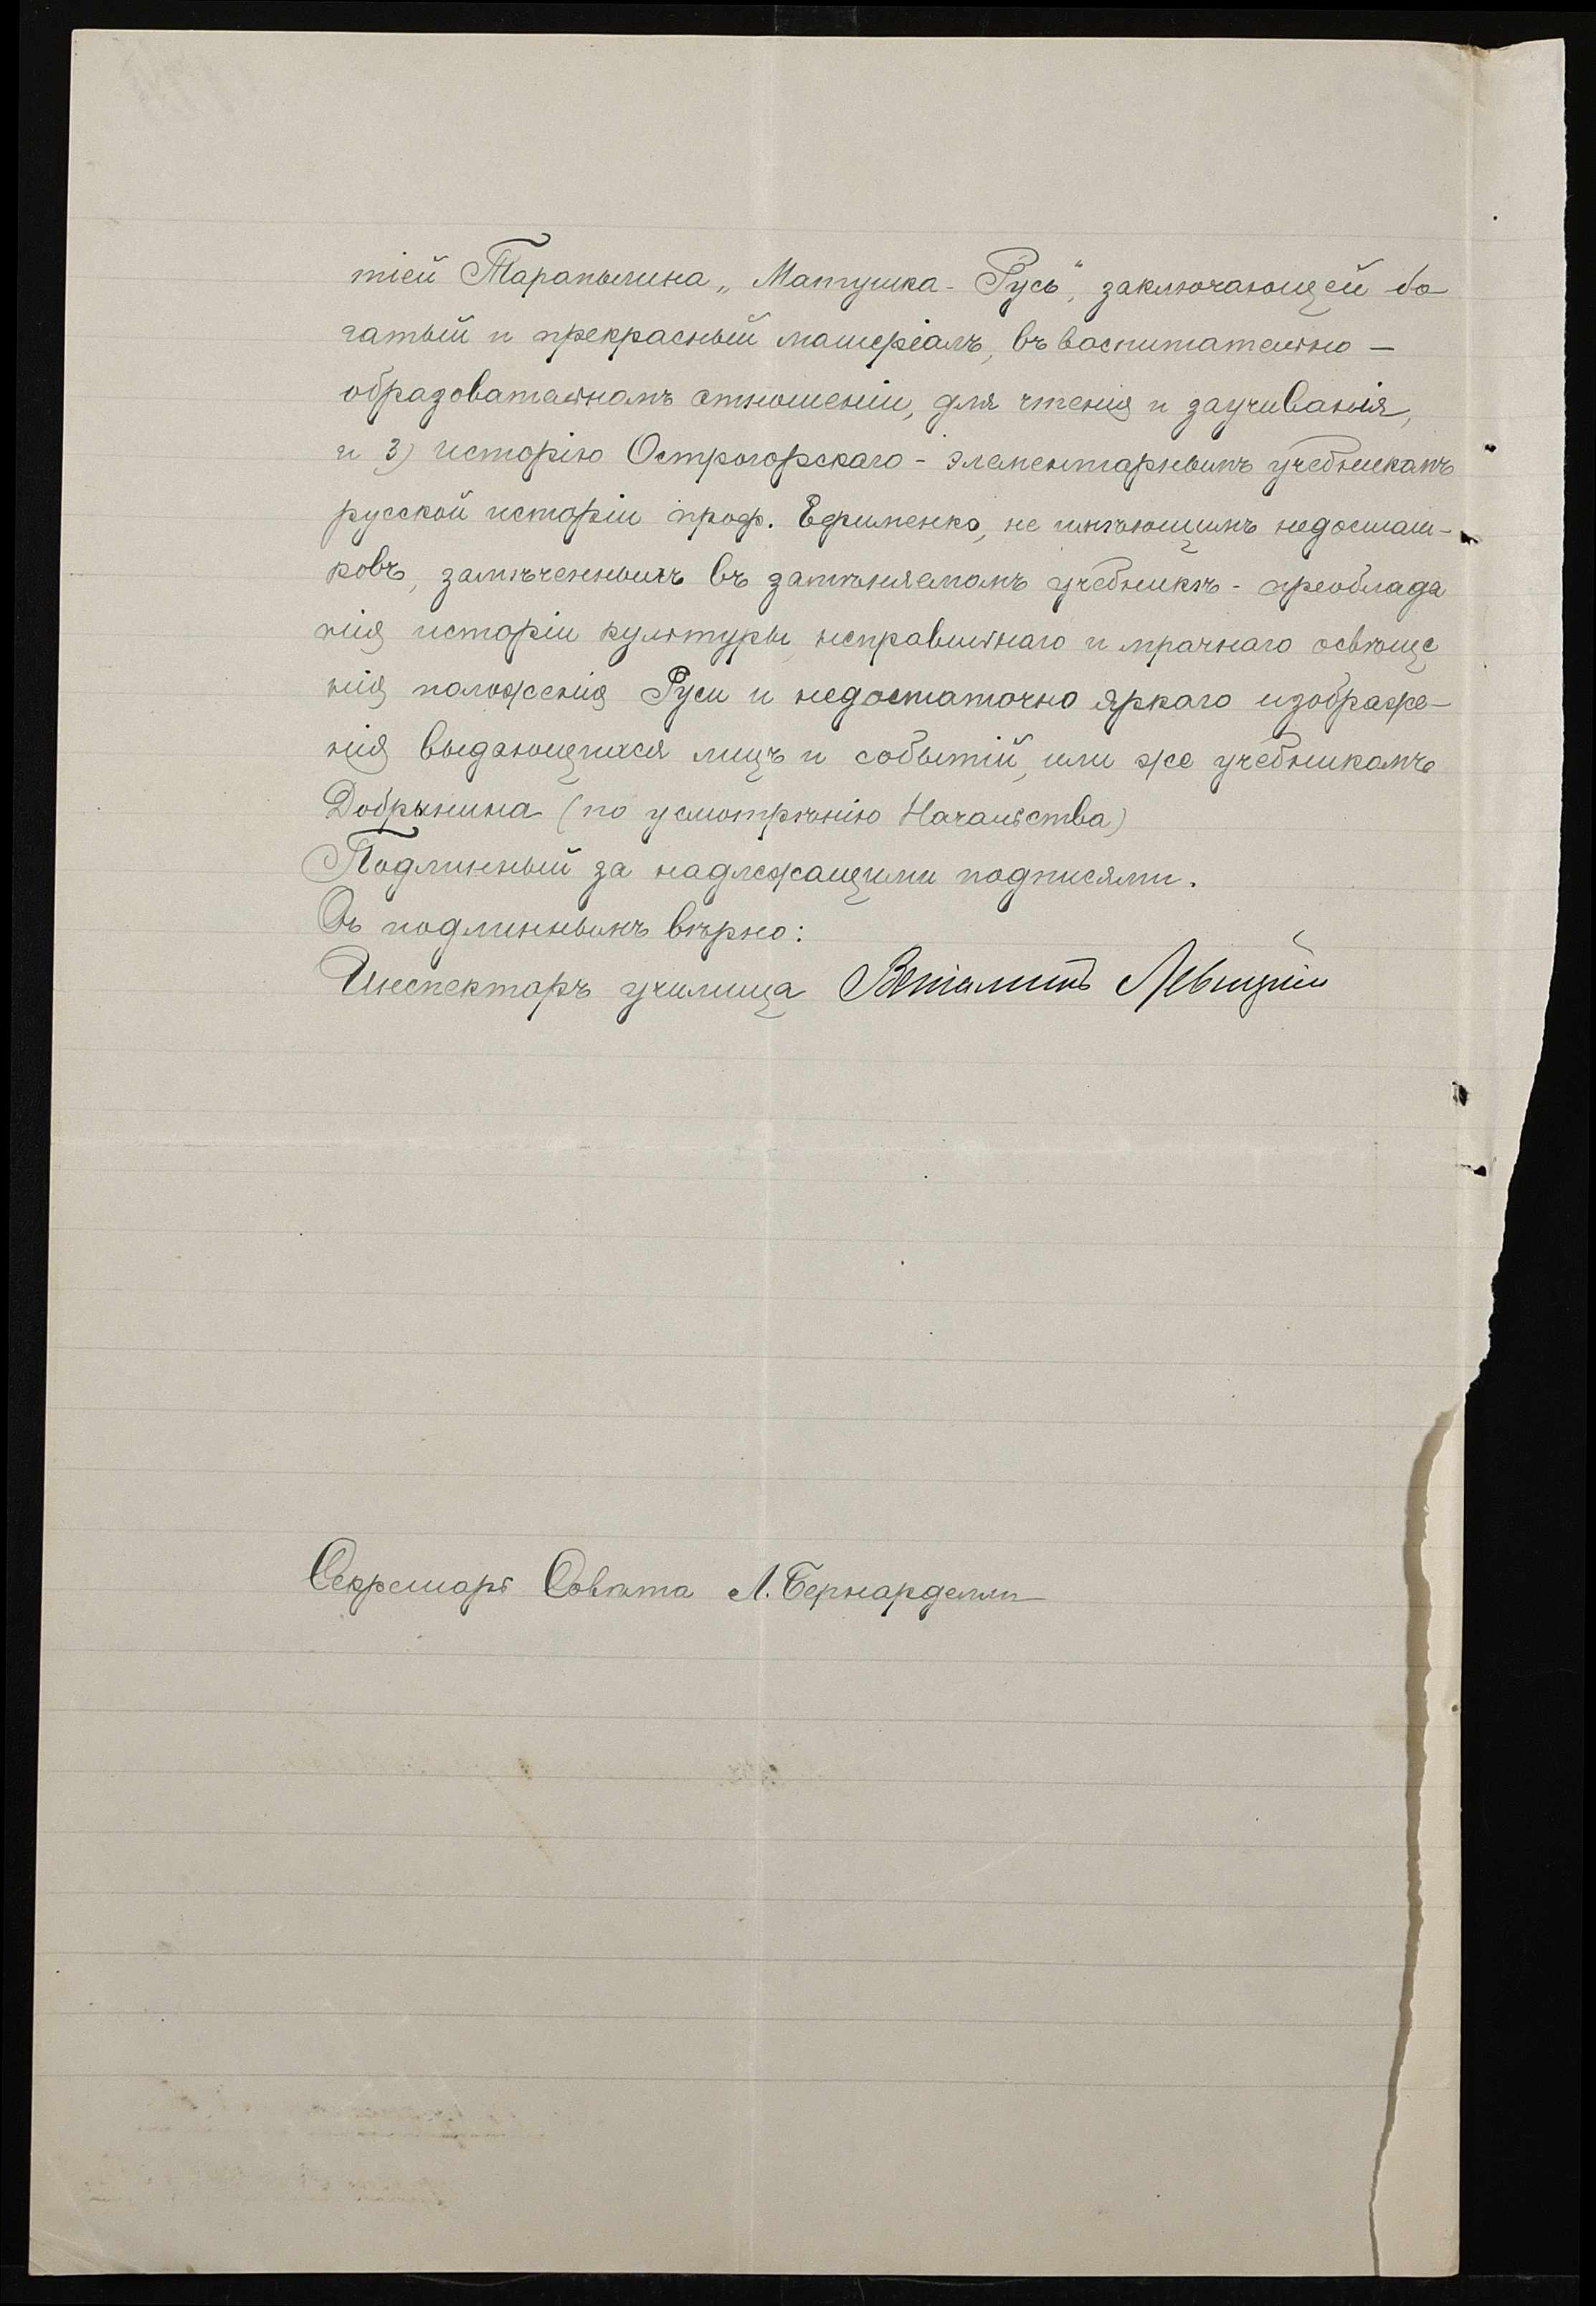 тіей Тарапыгина „Матушка-Русь", заключающей бо
гатый и прекрасный матеріалъ, въ воспитательно —
образовательномъ отношеніи, для чтенія и заучиванія,
и 3) исторію Острогорскаго - элементарнымъ учебникомъ
русской исторіи проф. Ефименко, не имѣющимъ недостат-
ковъ, замѣченныхъ въ замѣняемомъ учебникѣ - преоблада
нія исторіи культуры, неправильнаго и мрачнаго освѣще
нія положенія Руси и недостаточно яркаго изображе-
нія выдающихся лицъ и событій, или же учебникомъ
Добрынина (по усмотрѣнію Начальства)
Подлинный за надлежащими подписями.
Съ подлиннымъ вѣрно:
Инспекторъ училища Виталинъ Левицкій
Секретарь Совѣта Л. Бернарделли